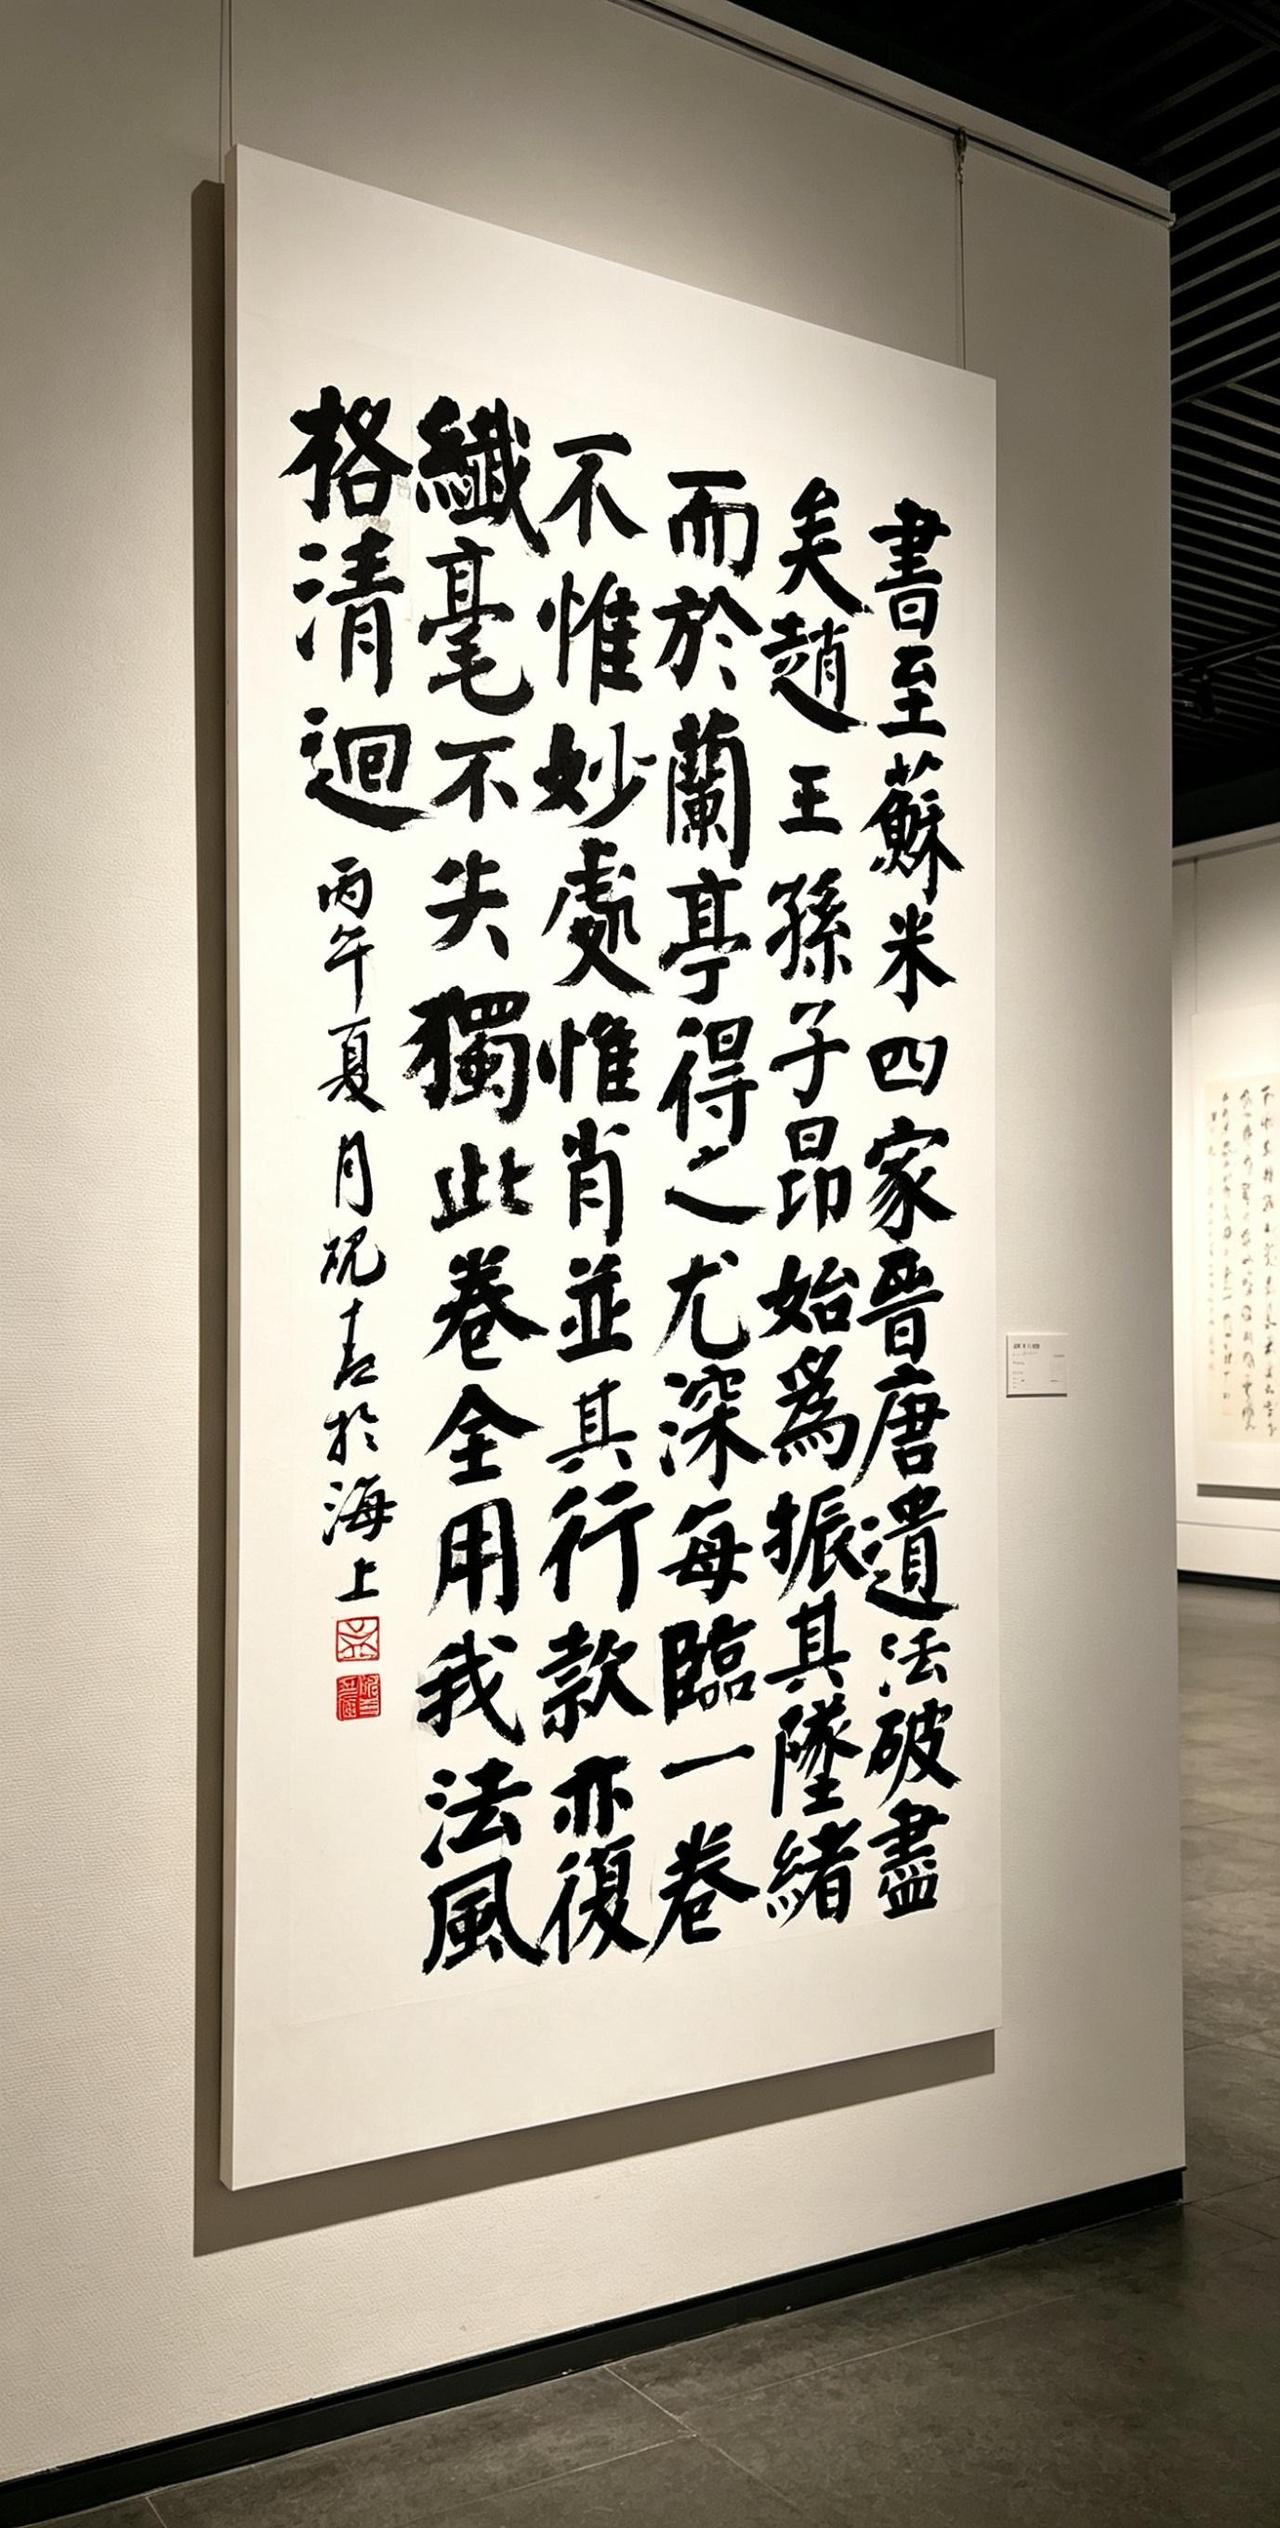 書至蘇米四家晉唐遺法破盡
矣趙王孫子昂始為振其墜緒
而於蘭亭得之尤深每臨一卷
不惟妙處惟肖並其行款亦復
纖毫不失獨此卷全用我法風
格清迴
丙午夏月祝於海上